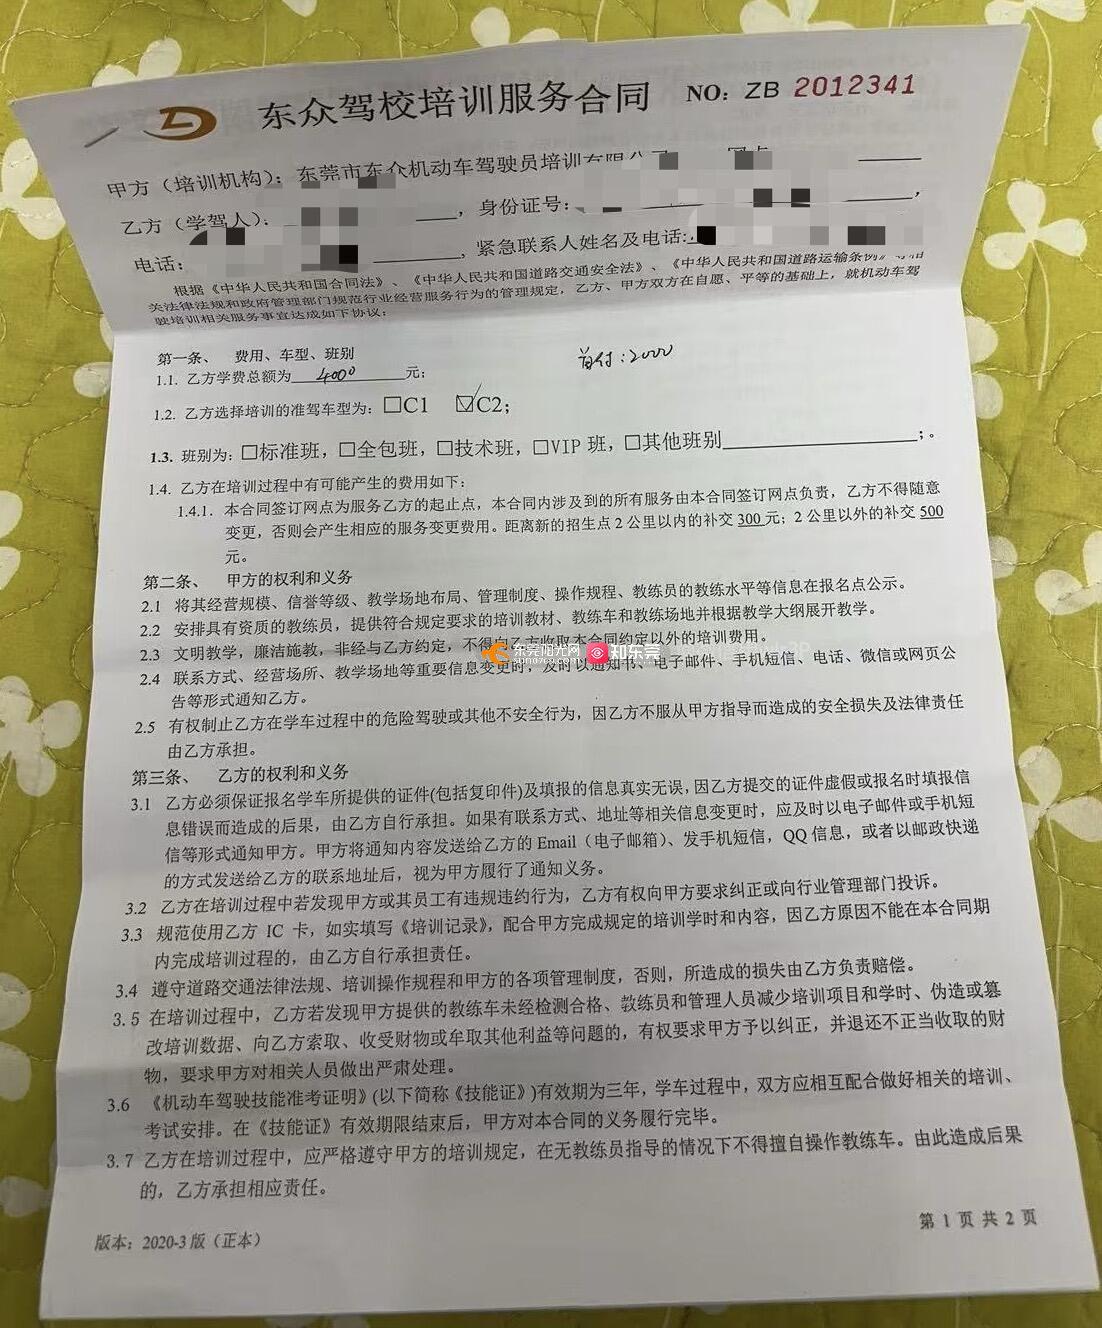 东众驾校培训服务合同 NO: ZB 2012341
甲方（培训机构）：东莞市东众机动车驾驶员培训有限公司
乙方（学驾人）： ，身份证号： ，
电话： ，紧急联系人姓名及电话：
根据《中华人民共和国合同法》、《中华人民共和国道路交通安全法》、《中华人民共和国道路运输条例》等相
关法律法规和政府管理部门规范行业经营服务行为的管理规定，乙方、甲方双方在自愿、平等的基础上，就机动车驾
驶培训相关服务事宜达成如下协议：
第一条、 费用、车型、班别
首付：2000
1.1. 乙方学费总额为 4000 元；
1.2. 乙方选择培训的准驾车型为：□C1 ☑C2；
1.3. 班别为：□标准班，□全包班，□技术班，□VIP 班，□其他班别 ；。
1.4. 乙方在培训过程中有可能产生的费用如下：
1.4.1. 本合同签订网点为服务乙方的起止点，本合同内涉及到的所有服务由本合同签订网点负责，乙方不得随意
变更，否则会产生相应的服务变更费用。距离新的招生点 2 公里以内的补交 300 元；2 公里以外的补交 500
元。
第二条、 甲方的权利和义务
2.1 将其经营规模、信誉等级、教学场地布局、管理制度、操作规程、教练员的教练水平等信息在报名点公示。
2.2 安排具有资质的教练员，提供符合规定要求的培训教材、教练车和教练场地并根据教学大纲展开教学。
2.3 文明教学，廉洁施教，非经与乙方约定，不得向乙方收取本合同约定以外的培训费用。
东莞阳光网 知东莞
2.4 联系方式、经营场所、教学场地等重要信息变更时，及时以通知书、电子邮件、手机短信、电话、微信或网页公
告等形式通知乙方。
2.5 有权制止乙方在学车过程中的危险驾驶或其他不安全行为，因乙方不服从甲方指导而造成的安全损失及法律责任
由乙方承担。
第三条、 乙方的权利和义务
3.1 乙方必须保证报名学车所提供的证件(包括复印件)及填报的信息真实无误，因乙方提交的证件虚假或报名时填报信
息错误而造成的后果，由乙方自行承担。如果有联系方式、地址等相关信息变更时，应及时以电子邮件或手机短
信等形式通知甲方。甲方将通知内容发送给乙方的 Email（电子邮箱）、发手机短信，QQ 信息，或者以邮政快递
的方式发送给乙方的联系地址后，视为甲方履行了通知义务。
3.2 乙方在培训过程中若发现甲方或其员工有违规违约行为，乙方有权向甲方要求纠正或向行业管理部门投诉。
3.3 规范使用乙方 IC 卡，如实填写《培训记录》，配合甲方完成规定的培训学时和内容，因乙方原因不能在本合同期
内完成培训过程的，由乙方自行承担责任。
3.4 遵守道路交通法律法规、培训操作规程和甲方的各项管理制度，否则，所造成的损失由乙方负责赔偿。
3.5 在培训过程中，乙方若发现甲方提供的教练车未经检测合格、教练员和管理人员减少培训项目和学时、伪造或篡
改培训数据、向乙方索取、收受财物或牟取其他利益等问题的，有权要求甲方予以纠正，并退还不正当收取的财
物，要求甲方对相关人员做出严肃处理。
3.6 《机动车驾驶技能准考证明》(以下简称《技能证》)有效期为三年，学车过程中，双方应相互配合做好相关的培训、
考试安排。在《技能证》有效期限结束后，甲方对本合同的义务履行完毕。
3.7 乙方在培训过程中，应严格遵守甲方的培训规定，在无教练员指导的情况下不得擅自操作教练车。由此造成后果
的，乙方承担相应责任。
第 1 页 共 2 页
版本：2020-3 版（正本）